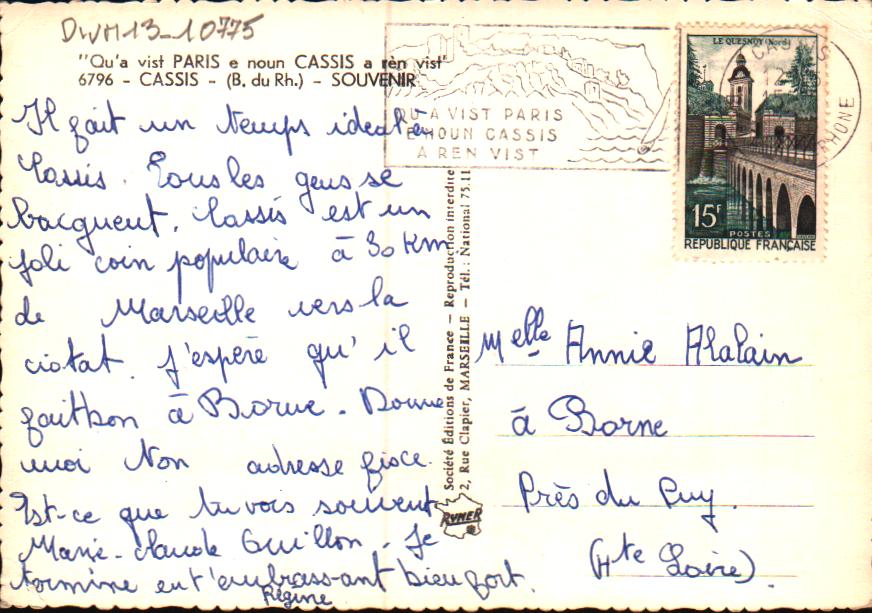 DWM13-10775
"Qu'a vist PARIS e noun CASSIS a rèn vist"
6796 - CASSIS - (B. du Rh.) - SOUVENIR
Il fait un temps ideal à
Cassis. Tous les gens se
bacquent. Cassis est un
joli coin populaire à 30 Km
de Marseille vers la
ciotat. J'espère qu'il
fait bon à Borne. Donne
moi ton adresse fisce.
Est-ce que tu vois souvent
Marie-claude Guillon. Je
termine en t'embrass-ant bien fort.
Régine
QU'A VIST PARIS
E NOUN CASSIS
A REN VIST
LE QUESNOY (Nord)
15F
POSTES
REPUBLIQUE FRANÇAISE
CASSIS
12
RHONE
Société Éditions de France — Reproduction interdite
2, Rue Clapier, MARSEILLE — Tél.: National 75.11
RYNER
Melle Annie Alalain
à Borne
Près du Puy.
(Hte Loire)